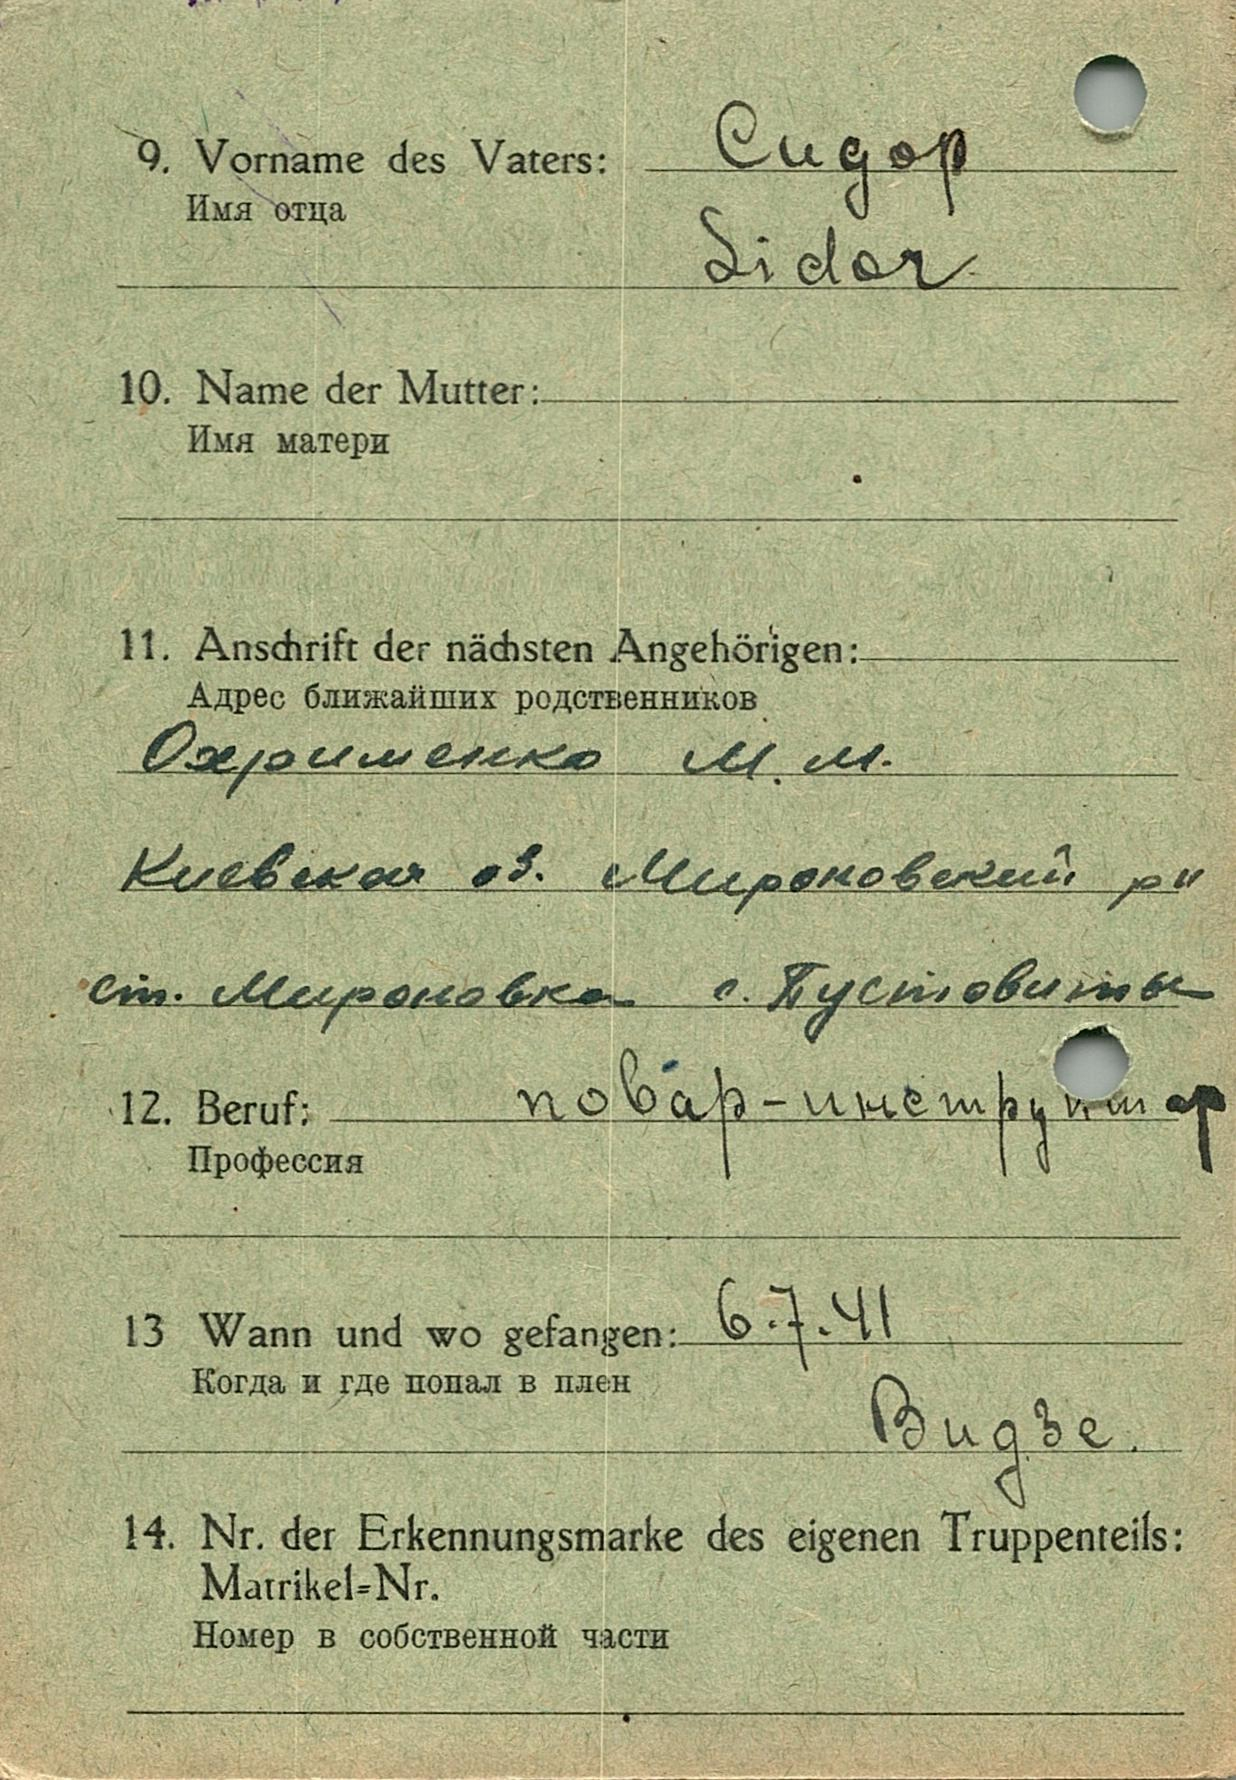 9. Vorname des Vaters: Сидор
Имя отца
Sidor
10. Name der Mutter:
Имя матери
11. Anschrift der nächsten Angehörigen:
Адрес ближайших родственников
Охрименко М. М.
Киевская об. Мироновский рн
ст. Мироновка с. Пустовиты
12. Beruf: повар-инструктор
Профессия
13 Wann und wo gefangen: 6.7.41
Когда и где попал в плен
Видзе.
14. Nr. der Erkennungsmarke des eigenen Truppenteils:
Matrikel=Nr.
Номер в собственной части